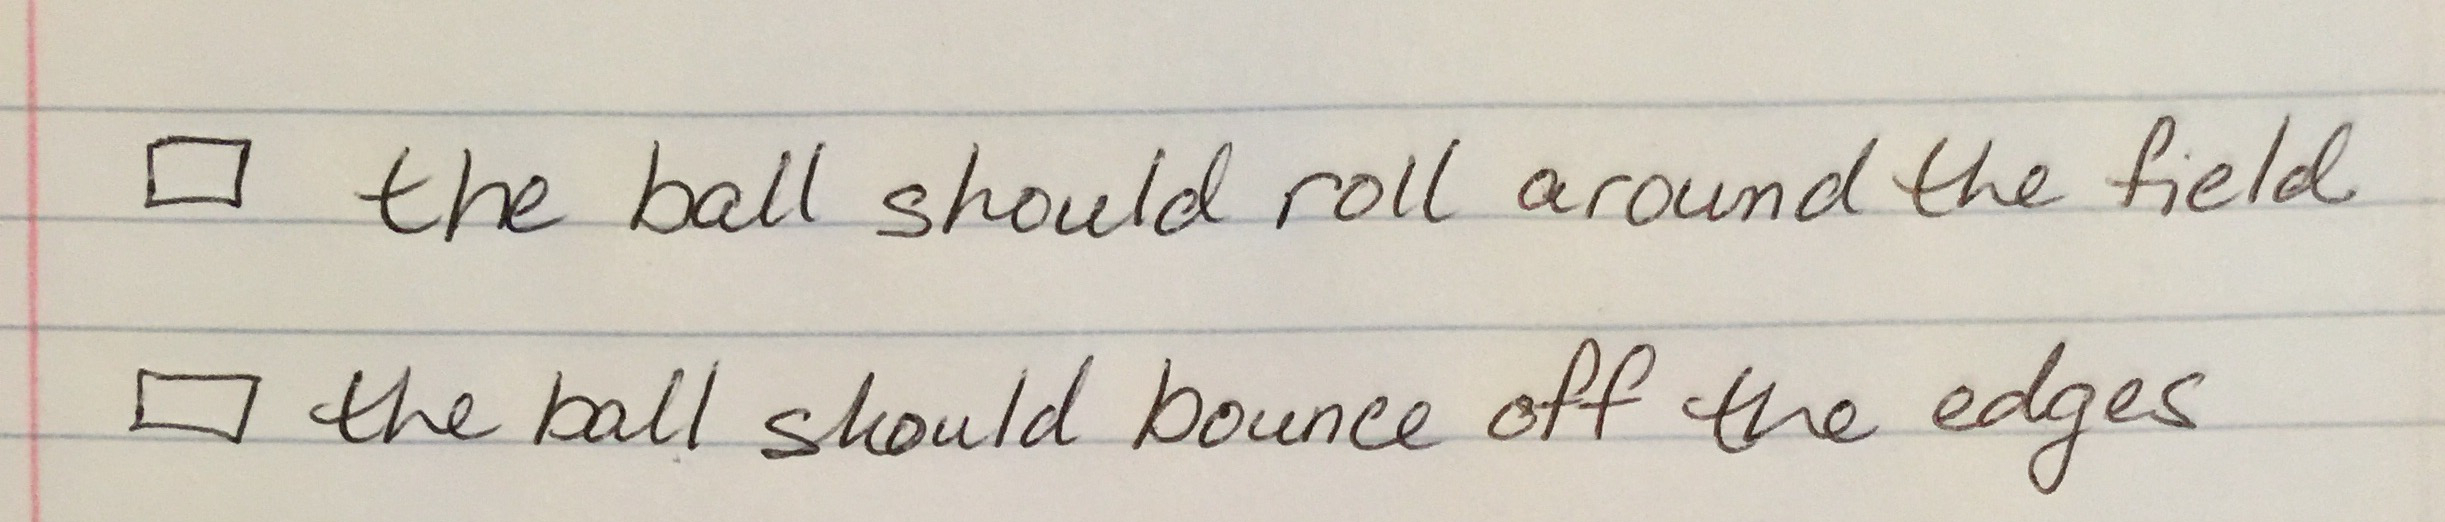 the ball should roll around the field
the ball should bounce off the edges